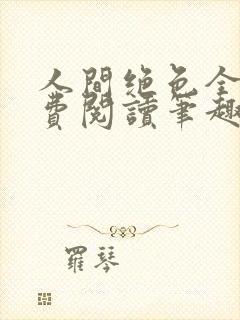 人間絶色全
費閱讀筆趣
羅琴